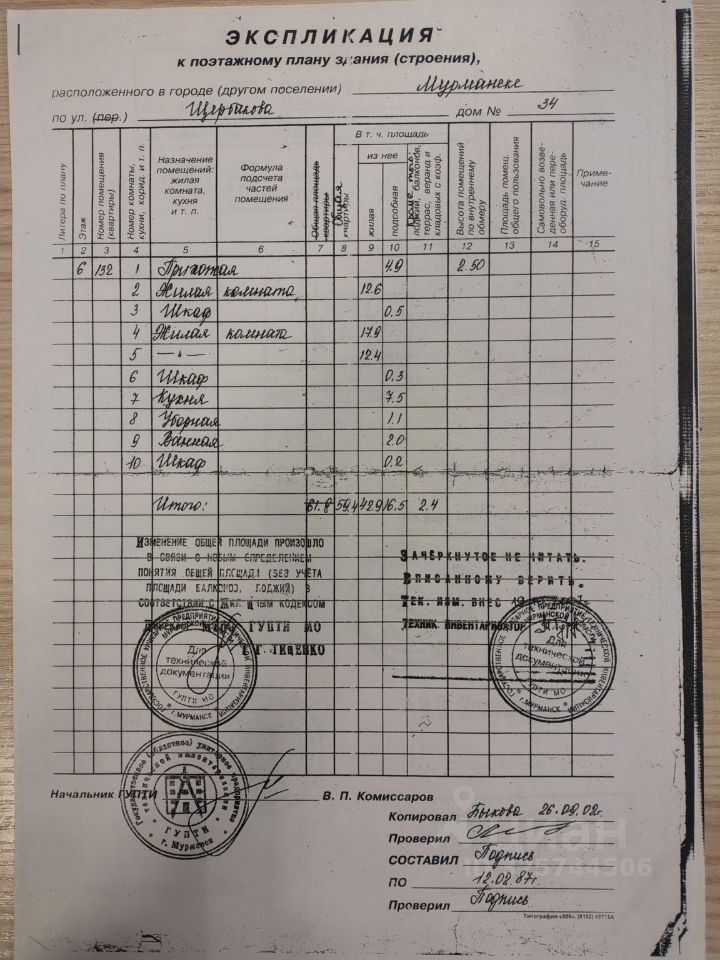 ЭКСПЛИКАЦИЯ
к поэтажному плану здания (строения),
расположенного в городе (другом поселении) Мурманске
по ул. (пер.) Щербакова дом № 34
Литера по плану
Этаж
Номер помещения (квартиры)
Номер комнаты, кухни, корид. и т. п.
Назначение помещений: жилая комната, кухня и т. п.
Формула подсчета частей помещения
Общая площадь квартиры
Общая квартиры
В т. ч. площадь
из нее
жилая
подсобная
лоджий, балконов, террас, веранд и кладовых с коэф.
Высота помещений по внутреннему обмеру
Площадь помещ. общего пользования
Самовольно возведенная или переоборуд. площадь
Примечание
1 2 3 4 5 6 7 8 9 10 11 12 13 14 15
6 132 1 Прихожая 4.9 2.50
2 Жилая комната 12.6
3 Шкаф 0.5
4 Жилая комната 17.9
5 —"— 12.4
6 Шкаф 0.3
7 Кухня 7.5
8 Уборная 1.1
9 Ванная 2.0
10 Шкаф 0.2
Итого: 61.8 59,4 42.9 16.5 2.4
ИЗМЕНЕНИЕ ОБЩЕЙ ПЛОЩАДИ ПРОИЗОШЛО
В СВЯЗИ С НОВЫМ ОПРЕДЕЛЕНИЕМ
ПОНЯТИЯ ОБЩЕЙ ПЛОЩАДИ (БЕЗ УЧЕТА
ПЛОЩАДИ БАЛКОНОВ, ЛОДЖИЙ) В
СООТВЕТСТВИИ С ЖИЛИЩНЫМ КОДЕКСОМ
ГУПТИ МО
Г. ТИЩЕНКО
ЗАЧЕРКНУТОЕ НЕ ЧИТАТЬ.
ВПИСАННОМУ ВЕРИТЬ.
ТЕК. ИЗМ. ВНЕС
ТЕХНИК ИНВЕНТАРИЗАТОР
Для
технической
документации
ГУПТИ МО
г. МУРМАНСК
Для
технической
документации
ГУПТИ МО
г. МУРМАНСК
ГУПТИ
г. Мурманск
Начальник ГУПТИ В. П. Комиссаров
Копировал Быкова 26.09.02г.
Проверил
СОСТАВИЛ Подпись
ПО 12.02.87г.
Проверил Подпись
Типография «999», (8152)